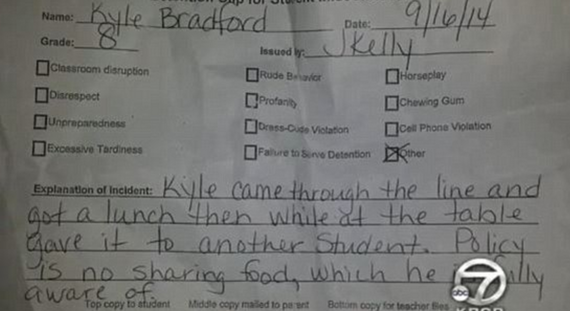 Detention Slip for Student
Name: Kyle Bradford Date: 9/16/14
Grade: 8 Issued by: JKelly
Classroom disruption Rude Behavior Horseplay
Disrespect Profanity Chewing Gum
Unpreparedness Dress-Code Violation Cell Phone Violation
Excessive Tardiness Failure to Serve Detention Other
Explanation of Incident: Kyle came through the line and
got a lunch then while at the table
gave it to another student. Policy
is no sharing food, which he is fully
aware of.
Top copy to student Middle copy mailed to parent Bottom copy for teacher files
abc 7